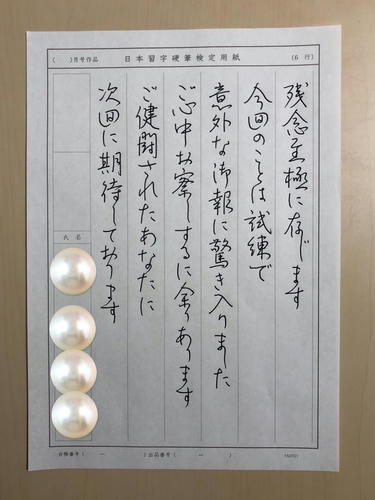 ( )月号作品 日本習字硬筆検定用紙 (6 行)
残念至極に存じます
今回のことは試練で
意外な御報に驚き入りました
ご心中お察しするに余りあります
ご健闘されたあなたに
次回に期待しております
氏名
合格番号 ( ー ) 出品番号 ( ー )